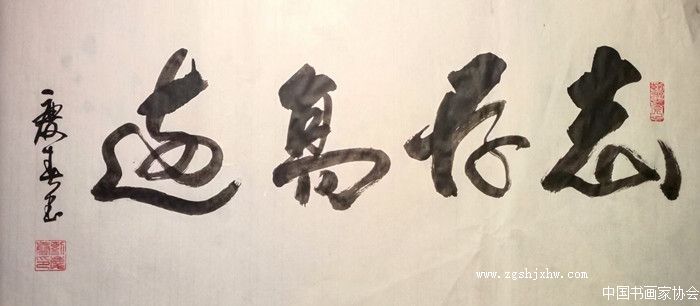 志存高远
庆春书
www.zgshjxhw.com
中国书画家协会